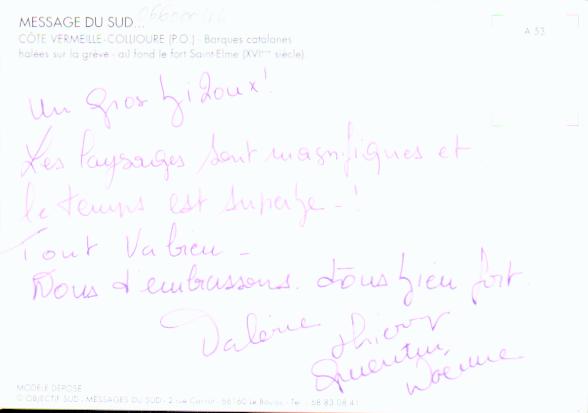 MESSAGE DU SUD...
CÔTE VERMEILLE-COLLIOURE (P.O.) - Barques catalanes
halées sur la grève - au fond le fort Saint-Elme (XVIème siècle)
A 53
Un gros bizoux!
Les Paysages sont magnifiques et
le temps est superbe - !
Tout va bien -
Nous t'embrassons. tous bien fort.
Valérie Thierry
Quentin
MODÈLE DÉPOSÉ
© OBJECTIF SUD - MESSAGES DU SUD - 2 rue Carnot - 66160 Le Boulou - Tel. 68 83 08 41